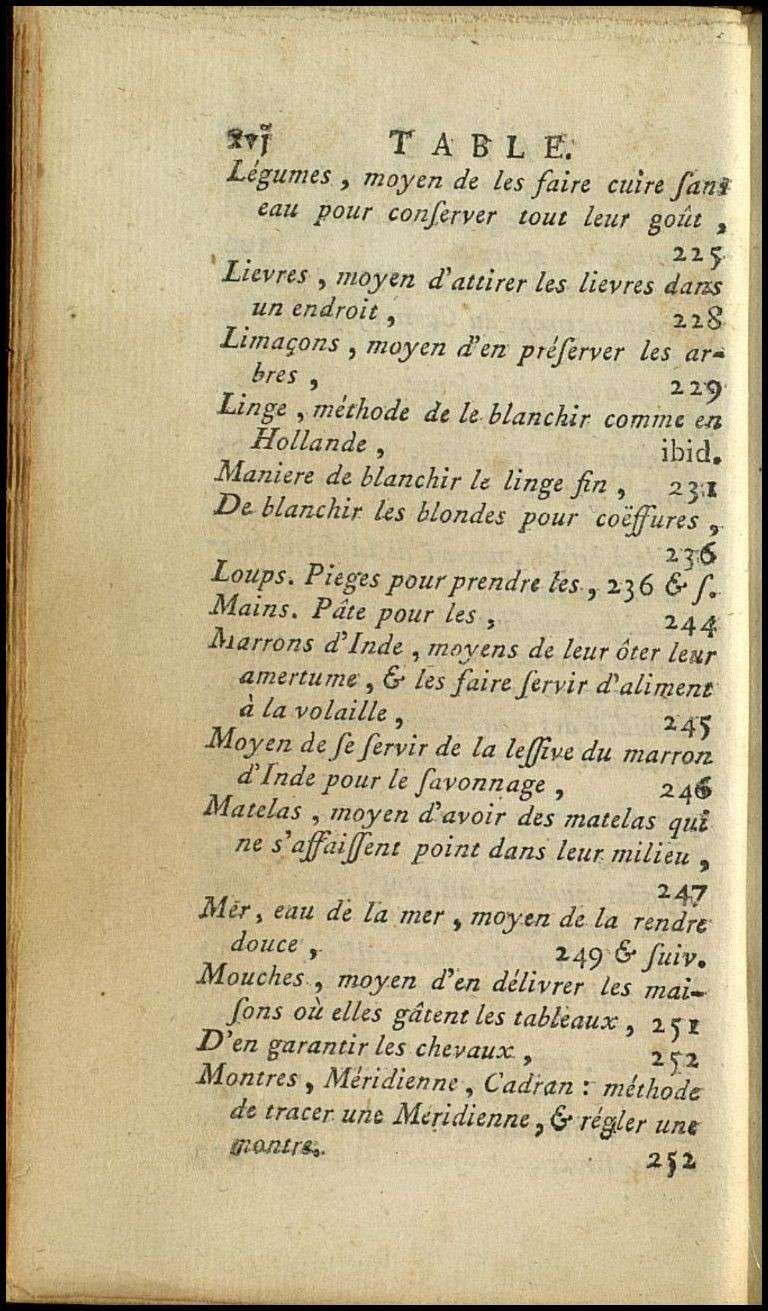 xvj TABLE.
Légumes , moyen de les faire cuire ſans
eau pour conſerver tout leur goût ,
225
Lievres , moyen d'attirer les lievres dans
un endroit , 228
Limaçons , moyen d'en préſerver les ar-
bres , 229
Linge , méthode de le blanchir comme en
Hollande , ibid.
Maniere de blanchir le linge fin , 231
De blanchir les blondes pour coëffures ,
236
Loups. Pieges pour prendre les , 236 & ſ.
Mains. Pâte pour les , 244
Marrons d'Inde , moyens de leur ôter leur
amertume , & les faire ſervir d'aliment
à la volaille , 245
Moyen de ſe ſervir de la leſſive du marron
d'Inde pour le ſavonnage , 246
Matelas , moyen d'avoir des matelas qui
ne s'affaiſſent point dans leur milieu ,
247
Mer , eau de la mer , moyen de la rendre
douce , 249 & ſuiv.
Mouches , moyen d'en délivrer les mai-
ſons où elles gâtent les tableaux , 251
D'en garantir les chevaux , 252
Montres , Méridienne , Cadran : méthode
de tracer une Méridienne , & régler une
montre. 252